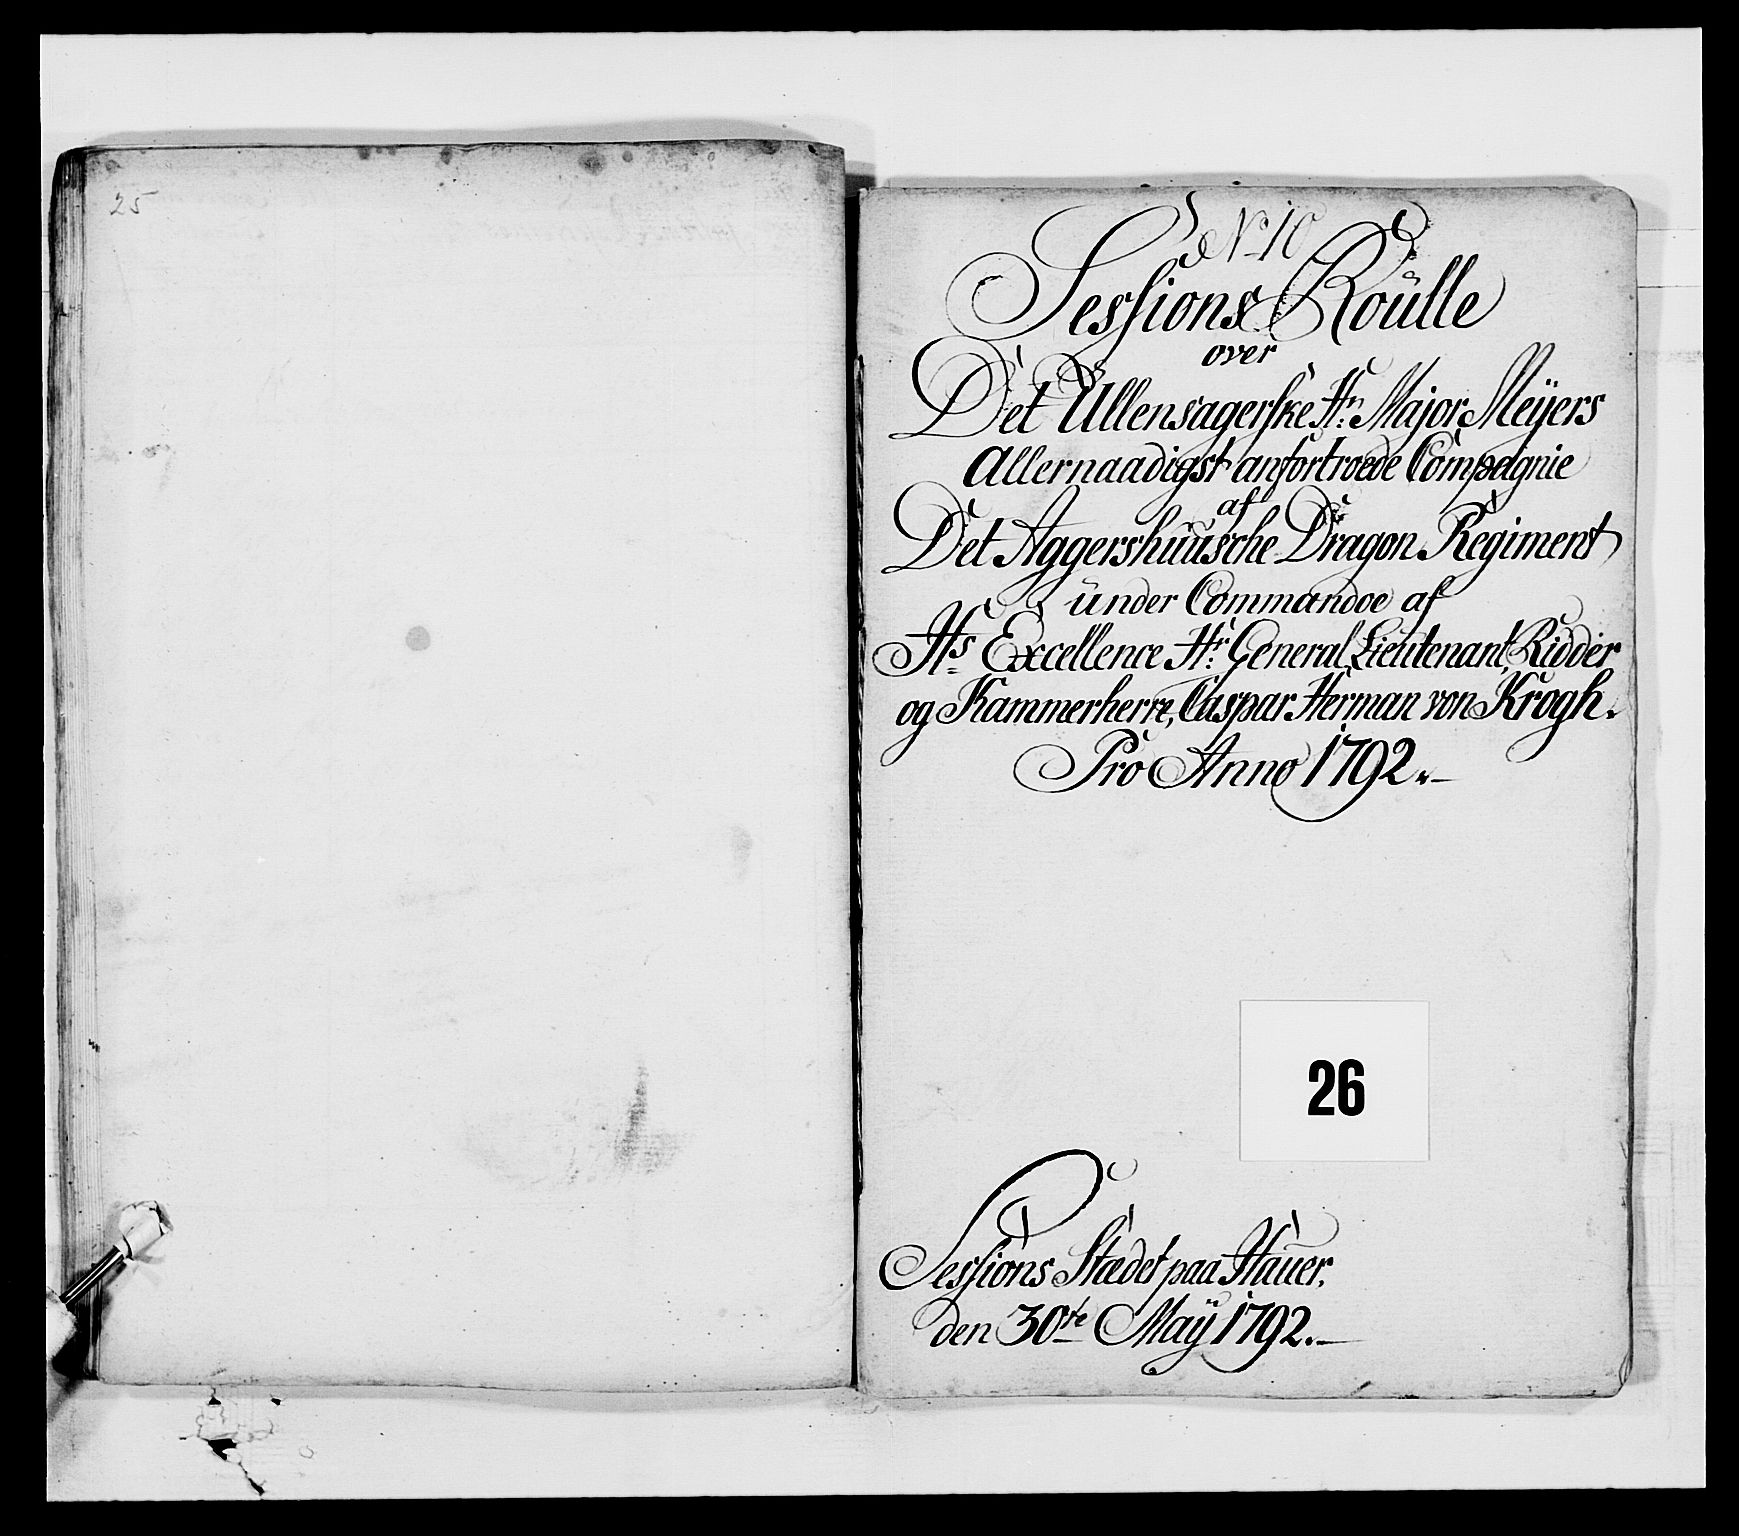 25
No 10
Sessions Roülle
over
Det Ullensagerske Hn: Major Meÿers
Allernaadigst anfortroede Compagnie
af
Det Aggershuusche Dragon Regiment
ünder Commandoe af
Hs Excellence Hr: General Lieutenant, Ridder
og Kammerherre, Caspar Herman von Krogh.
Pro Anno 1792.
26
Sessions Stædet paa Hauer,
den 30te Maÿ 1792.